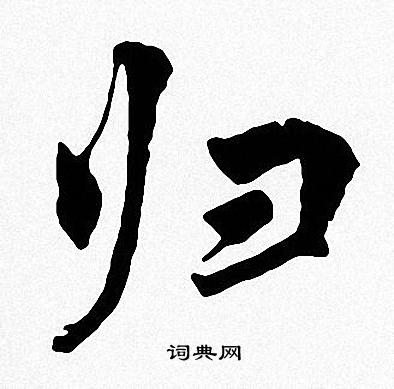 归
词典网